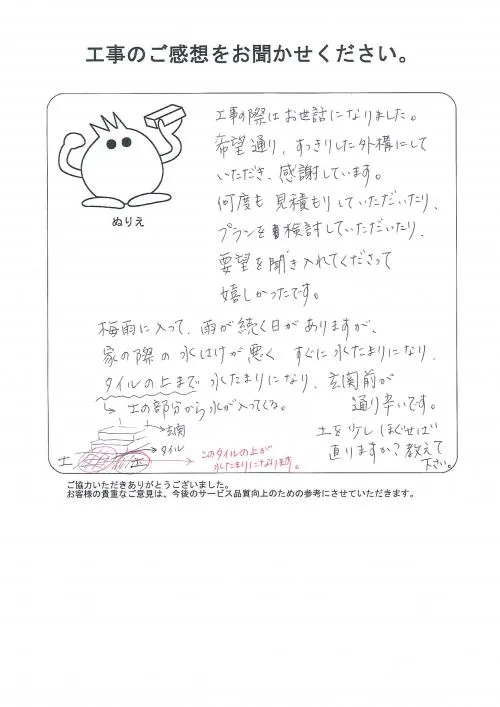 工事のご感想をお聞かせください。
工事の際はお世話になりました。
希望通り、すっきりした外構にして
いただき、感謝しています。
何度も見積もりしていただいたり、
プランを検討していただいたり、
要望を聞き入れてくださって
嬉しかったです。
ぬりえ
梅雨に入って、雨が続く日がありますが、
家の際の水はけが悪く すぐに水たまりになり、
タイルの上まで水たまりになり、玄関前が
通り辛いです。
→土の部分から水が入ってくる。
土を少しほぐせば
直りますか?教えて
下さい。
→玄関
→タイル
土
土
このタイルの上が
水たまりになります。
ご協力いただきありがとうございました。
お客様の貴重なご意見は、今後のサービス品質向上のための参考にさせていただきます。